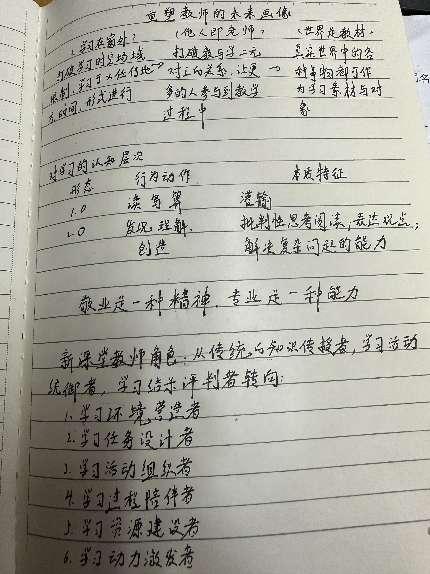 重塑教师的未来画像
《学习在窗外》 《他人即老师》 《世界是教材》
打破学习时空场域 打破教与学二元 真实世界中的各
限制,学习于任何地 → 对立的关系,让更 → 种事物都可作
方、时间、形式进行 多的人参与到教学 为学习素材与对
过程中 象
对学习的认知层次
形态 行为动作 本质特征
1.0 读写算 灌输
2.0 发现 理解 批判性思考阅读,表达观点;
创造 解决复杂问题的能力
敬业是一种精神,专业是一种能力
新课堂教师角色:从传统的知识传授者,学习活动
统御者,学习结果评判者转向:
1.学习环境营造者
2.学习任务设计者
3.学习活动组织者
4.学习过程陪伴者
5.学习资源建设者
6.学习动力激发者